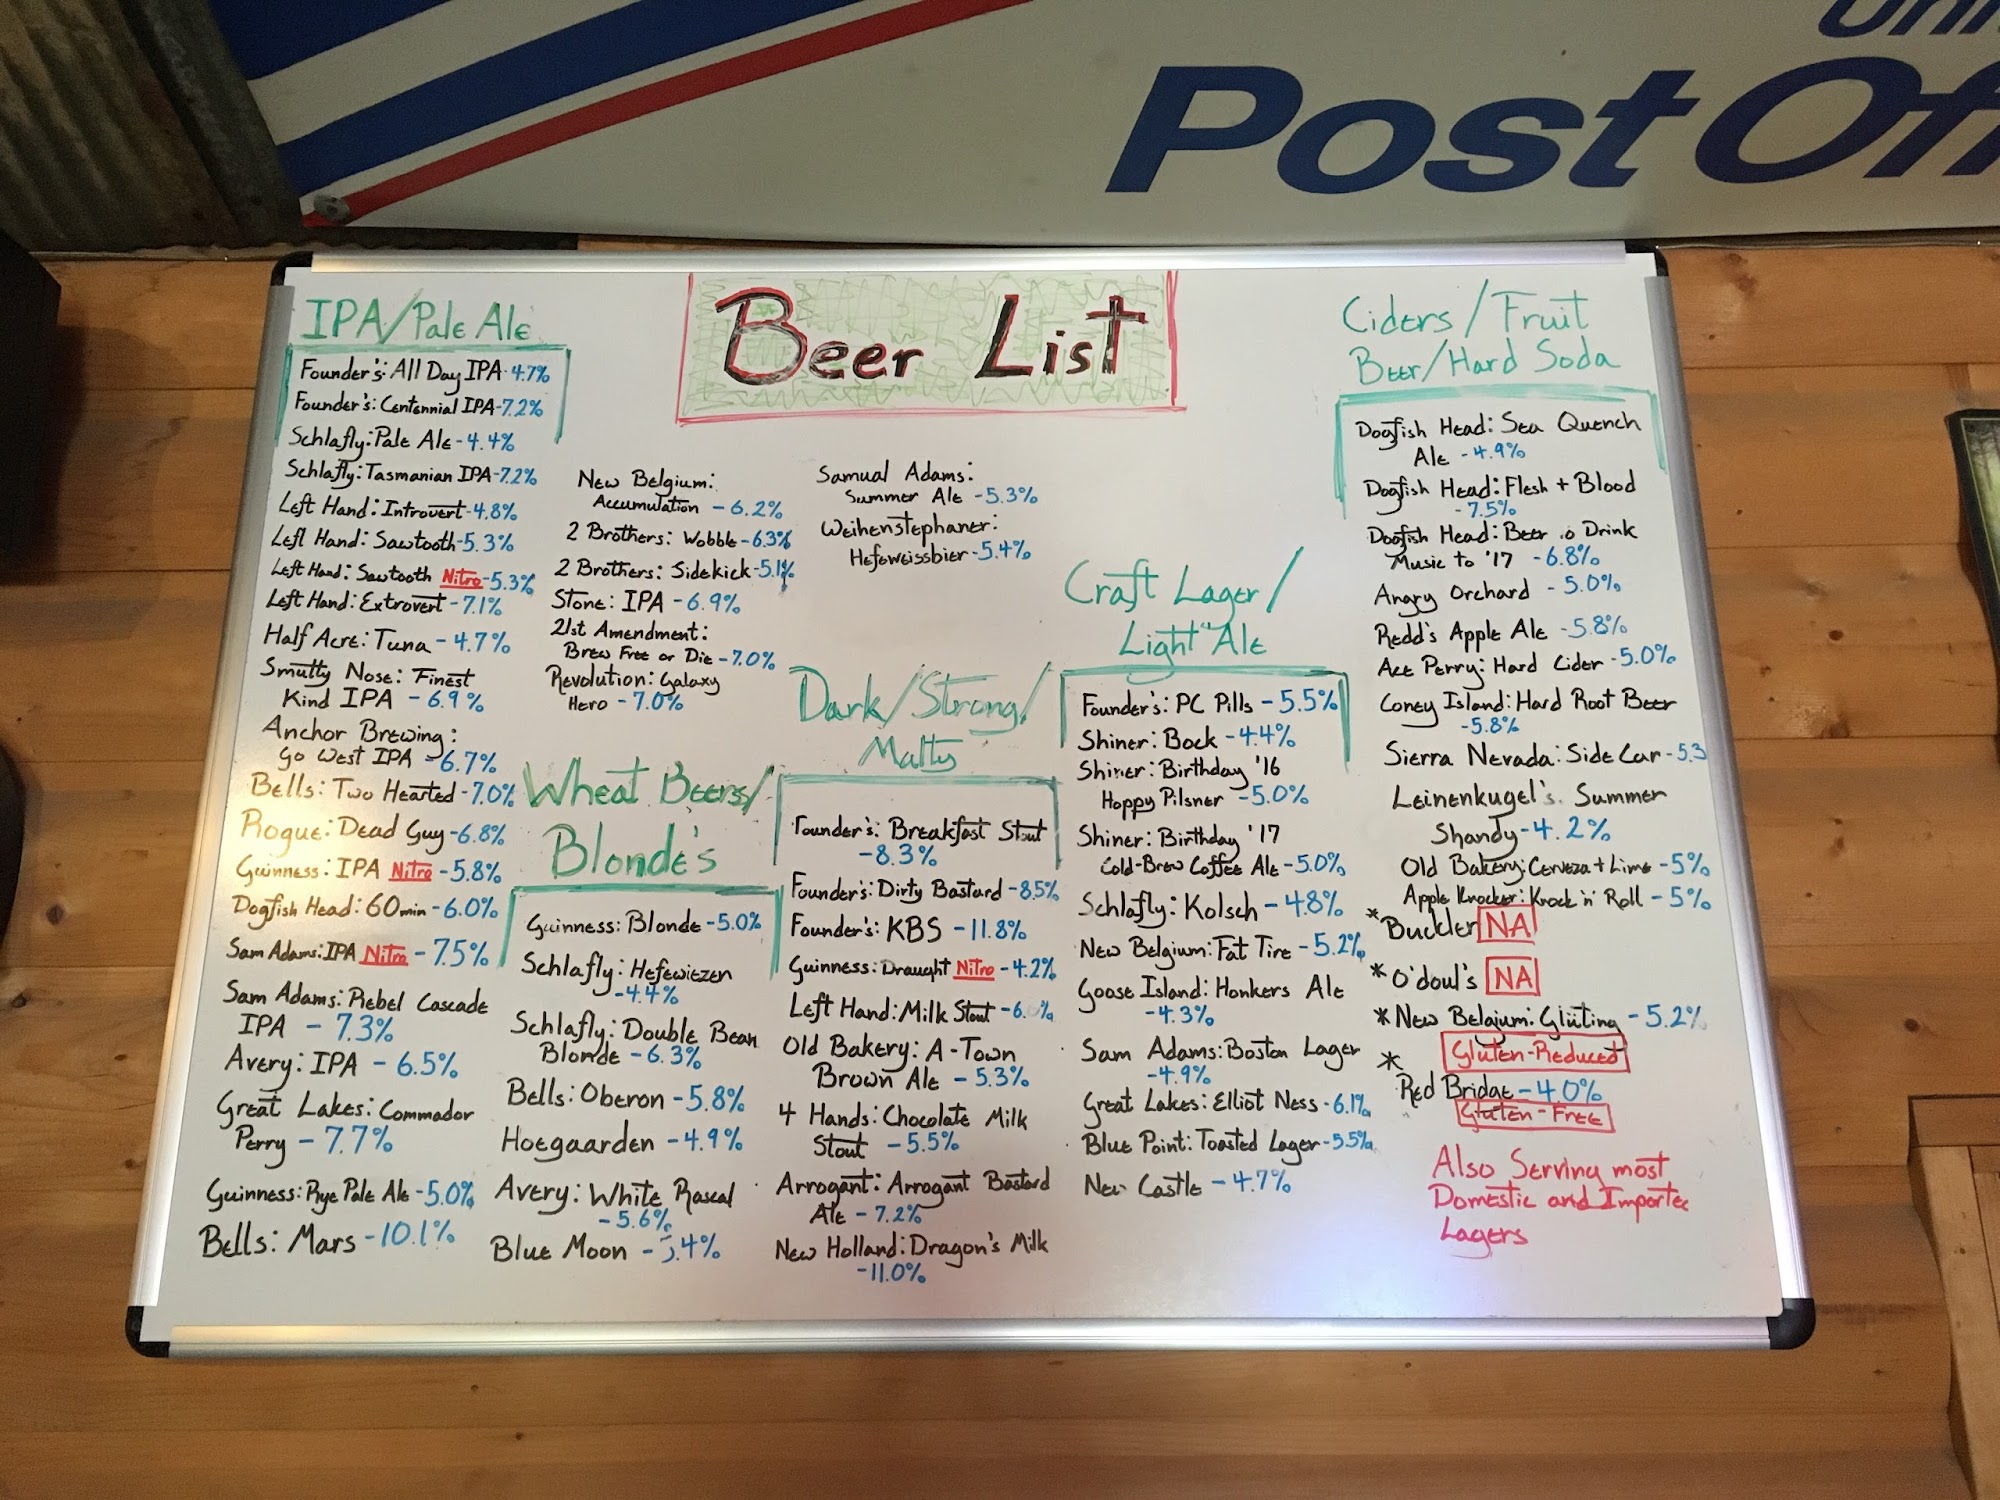 Post Of
Beer List
IPA/Pale Ale
Founder's: All Day IPA-4.7%
Founder's: Centennial IPA-7.2%
Schlafly: Pale Ale-4.4%
Schlafly: Tasmanian IPA-7.2%
Left Hand: Introvert-4.8%
Left Hand: Sawtooth-5.3%
Left Hand: Sawtooth Nitro-5.3%
Left Hand: Extrovert-7.1%
Half Acre: Tuna-4.7%
Smutty Nose: Finest
Kind IPA -6.9%
Anchor Brewing:
Go West IPA -6.7%
Bells: Two Hearted-7.0%
Rogue: Dead Guy-6.8%
Guinness: IPA Nitro-5.8%
Dogfish Head: 60min-6.0%
Sam Adams: IPA Nitro-7.5%
Sam Adams: Rebel Cascade
IPA - 7.3%
Avery: IPA - 6.5%
Great Lakes: Commador
Perry - 7.7%
Guinness: Rye Pale Ale-5.0%
Bells: Mars-10.1%
New Belgium:
Accumulation - 6.2%
2 Brothers: Wobble-6.3%
2 Brothers: Sidekick-5.1%
Stone: IPA - 6.9%
21st Amendment:
Brew Free or Die-7.0%
Revolution: Galaxy
Hero - 7.0%
Samual Adams:
Summer Ale -5.3%
Weihenstephaner:
Hefeweissbier-5.4%
Wheat Beers/
Blonde's
Guinness: Blonde-5.0%
Schlafly: Hefewiezen
-4.4%
Schlafly: Double Bean
Blonde -6.3%
Bells: Oberon-5.8%
Hoegaarden -4.9%
Avery: White Rascal
-5.6%
Blue Moon - 5.4%
Dark/Strong/
Malty
Founder's: Breakfast Stout
-8.3%
Founder's: Dirty Bastard-8.5%
Founder's: KBS -11.8%
Guinness: Draught Nitro-4.2%
Left Hand: Milk Stout
Old Bakery: A-Town
Brown Ale - 5.3%
4 Hands: Chocolate Milk
Stout -5.5%
Arrogant: Arrogant Bastard
Ale - 7.2%
New Holland: Dragon's Milk
-11.0%
Craft Lager/
Light Ale
Founder's: PC Pills - 5.5%
Shiner: Bock -4.4%
Shiner: Birthday '16
Hoppy Pilsner -5.0%
Shiner: Birthday '17
Cold-Brew Coffee Ale-5.0%
Schlafly: Kolsch - 4.8%
New Belgium: Fat Tire -5.2%
Goose Island: Honkers Ale
-4.3%
Sam Adams: Boston Lager
-4.9%
Great Lakes: Elliot Ness-6.1%
Blue Point: Toasted Lager-5.5%
New Castle -4.7%
Ciders/Fruit
Beer/Hard Soda
Dogfish Head: Sea Quench
Ale -4.9%
Dogfish Head: Flesh + Blood
-7.5%
Dogfish Head: Beer to Drink
Music to '17 -6.8%
Angry Orchard -5.0%
Redd's Apple Ale -5.8%
Ace Perry: Hard Cider-5.0%
Coney Island: Hard Root Beer
-5.8%
Sierra Nevada: Side Car-5.3
Leinenkugel's Summer
Shandy-4.2%
Old Bakery: Cerveza + Lime -5%
Apple Knocker: Knock 'n' Roll -5%
*Buckler NA
*O'doul's NA
*New Belgium: Glüting -5.2%
Gluten-Reduced
*Red Bridge-4.0%
Gluten-Free
Also Serving most
Domestic and Importe
Lagers